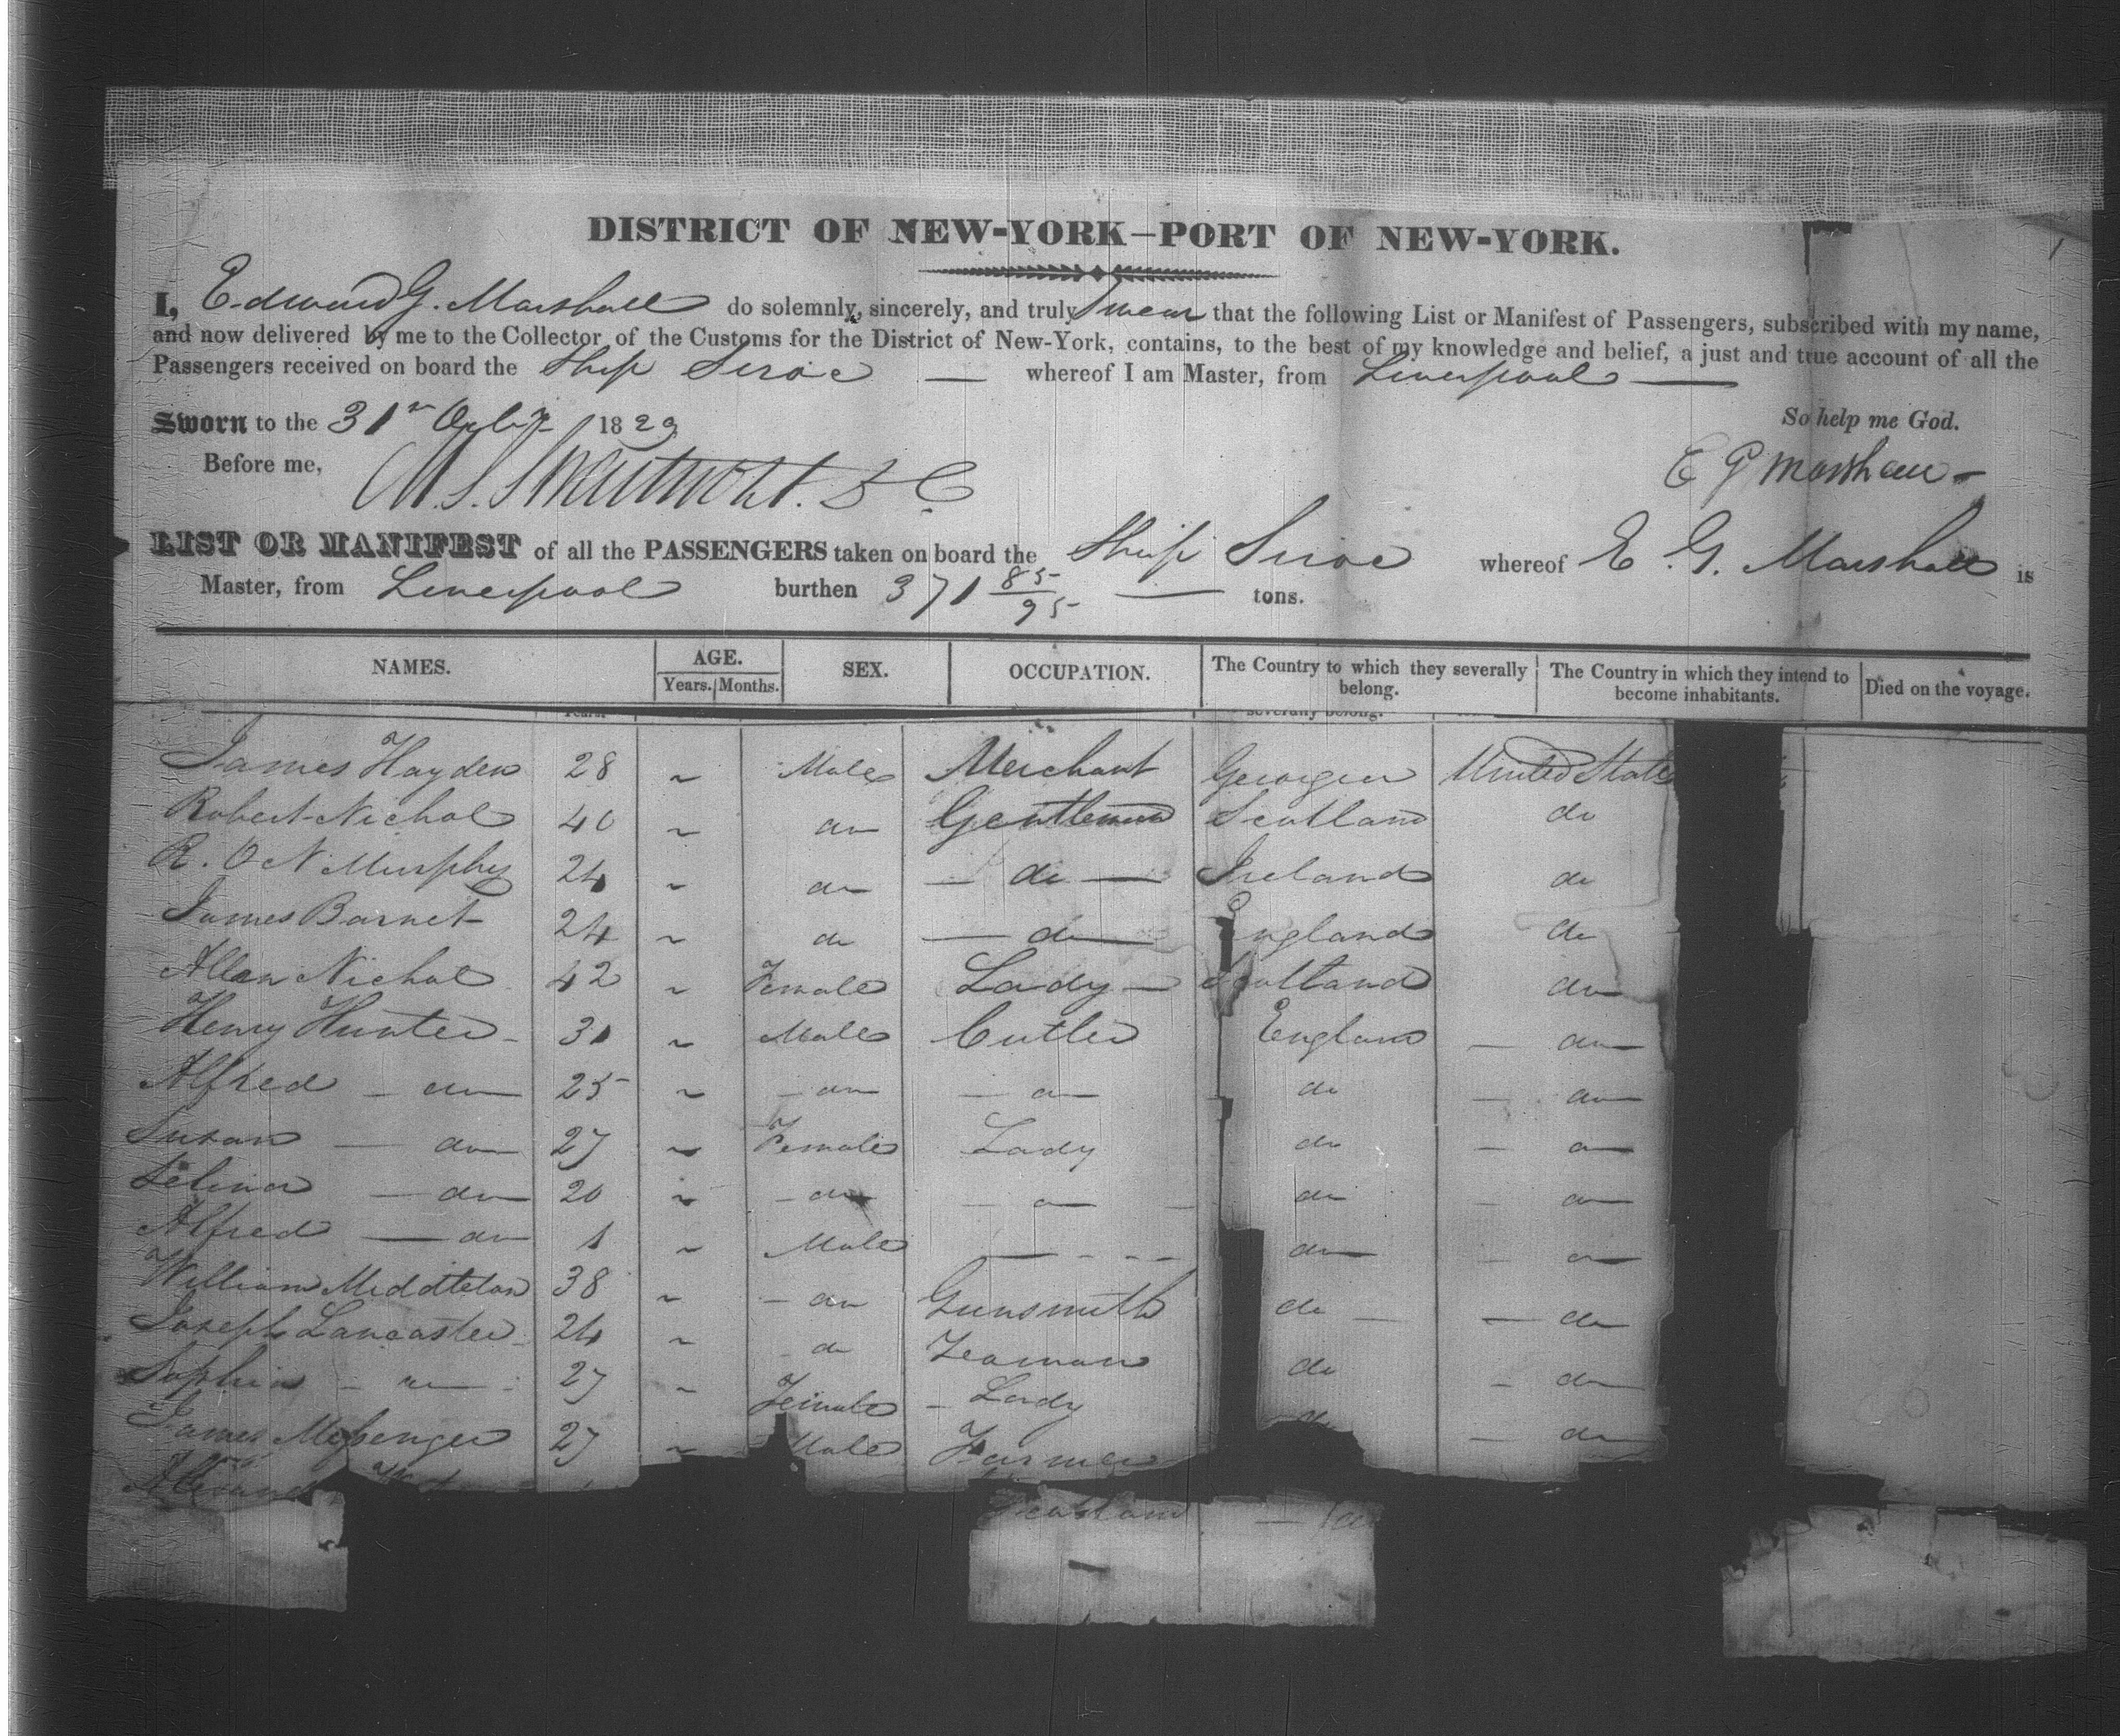 DISTRICT OF NEW-YORK—PORT OF NEW-YORK.
I, Edward G. Marshall do solemnly, sincerely, and truly Swear that the following List or Manifest of Passengers, subscribed with my name,
and now delivered by me to the Collector of the Customs for the District of New-York, contains, to the best of my knowledge and belief, a just and true account of all the
Passengers received on board the Ship Siroc — whereof I am Master, from Liverpool —
Sworn to the 31st 1829 So help me God.
Before me, E G Marshall
LIST OR MANIFEST of all the PASSENGERS taken on board the Ship Siroc whereof E. G. Marshall is
Master, from Liverpool burthen 371 85/95 — tons.
NAMES. AGE. Years. Months. SEX. OCCUPATION. The Country to which they severally belong. The Country in which they intend to become inhabitants. Died on the voyage.
Years. severally belong.
James Hayden 28 ~ Male Merchant Georgia United States
Robert Nichol 40 ~ do Gentleman Scotland do
R. O N Murphy 24 ~ do — do — Ireland do
James Barnet 24 ~ do — do — England do
Allan Nichol 42 ~ Female Lady — Scotland do
Henry Hunter 31 ~ Male Cutler England — do
Alfred — do 25 ~ — do — do — do — do
Susan — do 27 ~ Female Lady do — do
Selina — do 20 ~ — do — do — do — do
Alfred — do 1 ~ Male — - - - do — do
William Middleton 38 ~ — do Gunsmith do — — do
Joseph Lancaster 24 ~ do Yeoman do — do
Sophia — do 27 ~ Female — Lady do — do
James Messenger 27 ~ Male Farmer
Scotland — do